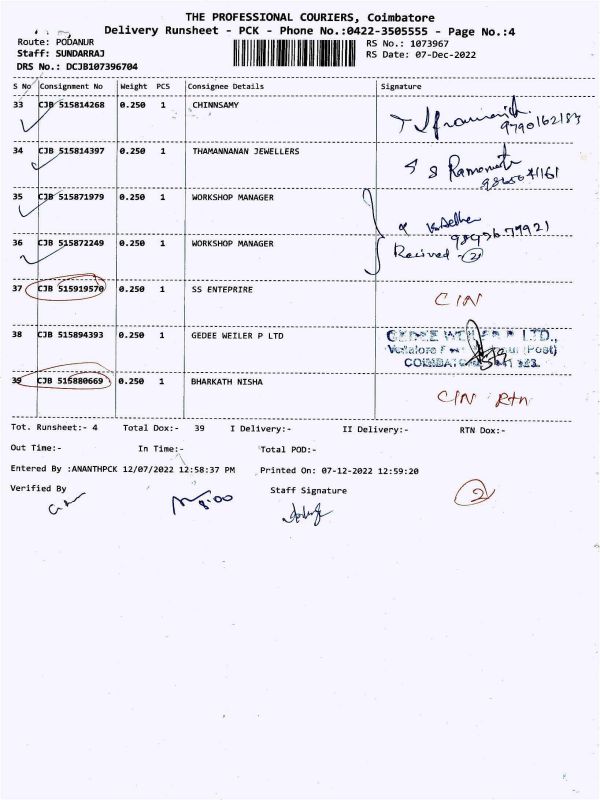 THE PROFESSIONAL COURIERS, Coimbatore
Delivery Runsheet - PCK - Phone No.:0422-3505555 - Page No.:4
Route: PODANUR
RS No.: 1073967
Staff: SUNDARRAJ
RS Date: 07-Dec-2022
DRS No.: DCJB107396704
S No Consignment No Weight PCS Consignee Details Signature
33 CJB 515814268 0.250 1 CHINNSAMY
9790162183
34 CJB 515814397 0.250 1 THAMANNANAN JEWELLERS
35 CJB 515871979 0.250 1 WORKSHOP MANAGER
36 CJB 515872249 0.250 1 WORKSHOP MANAGER
Received - 2
37 CJB 515919570 0.250 1 SS ENTEPRIRE
CIN
38 CJB 515894393 0.250 1 GEDEE WEILER P LTD
GEDEE WEILER P LTD.,
39 CJB 515880669 0.250 1 BHARKATH NISHA
CIN Rtn
Tot. Runsheet:- 4 Total Dox:- 39 I Delivery:- II Delivery:- RTN Dox:-
Out Time:- In Time:- Total POD:-
Entered By :ANANTHPCK 12/07/2022 12:58:37 PM Printed On: 07-12-2022 12:59:20
Verified By Staff Signature
2